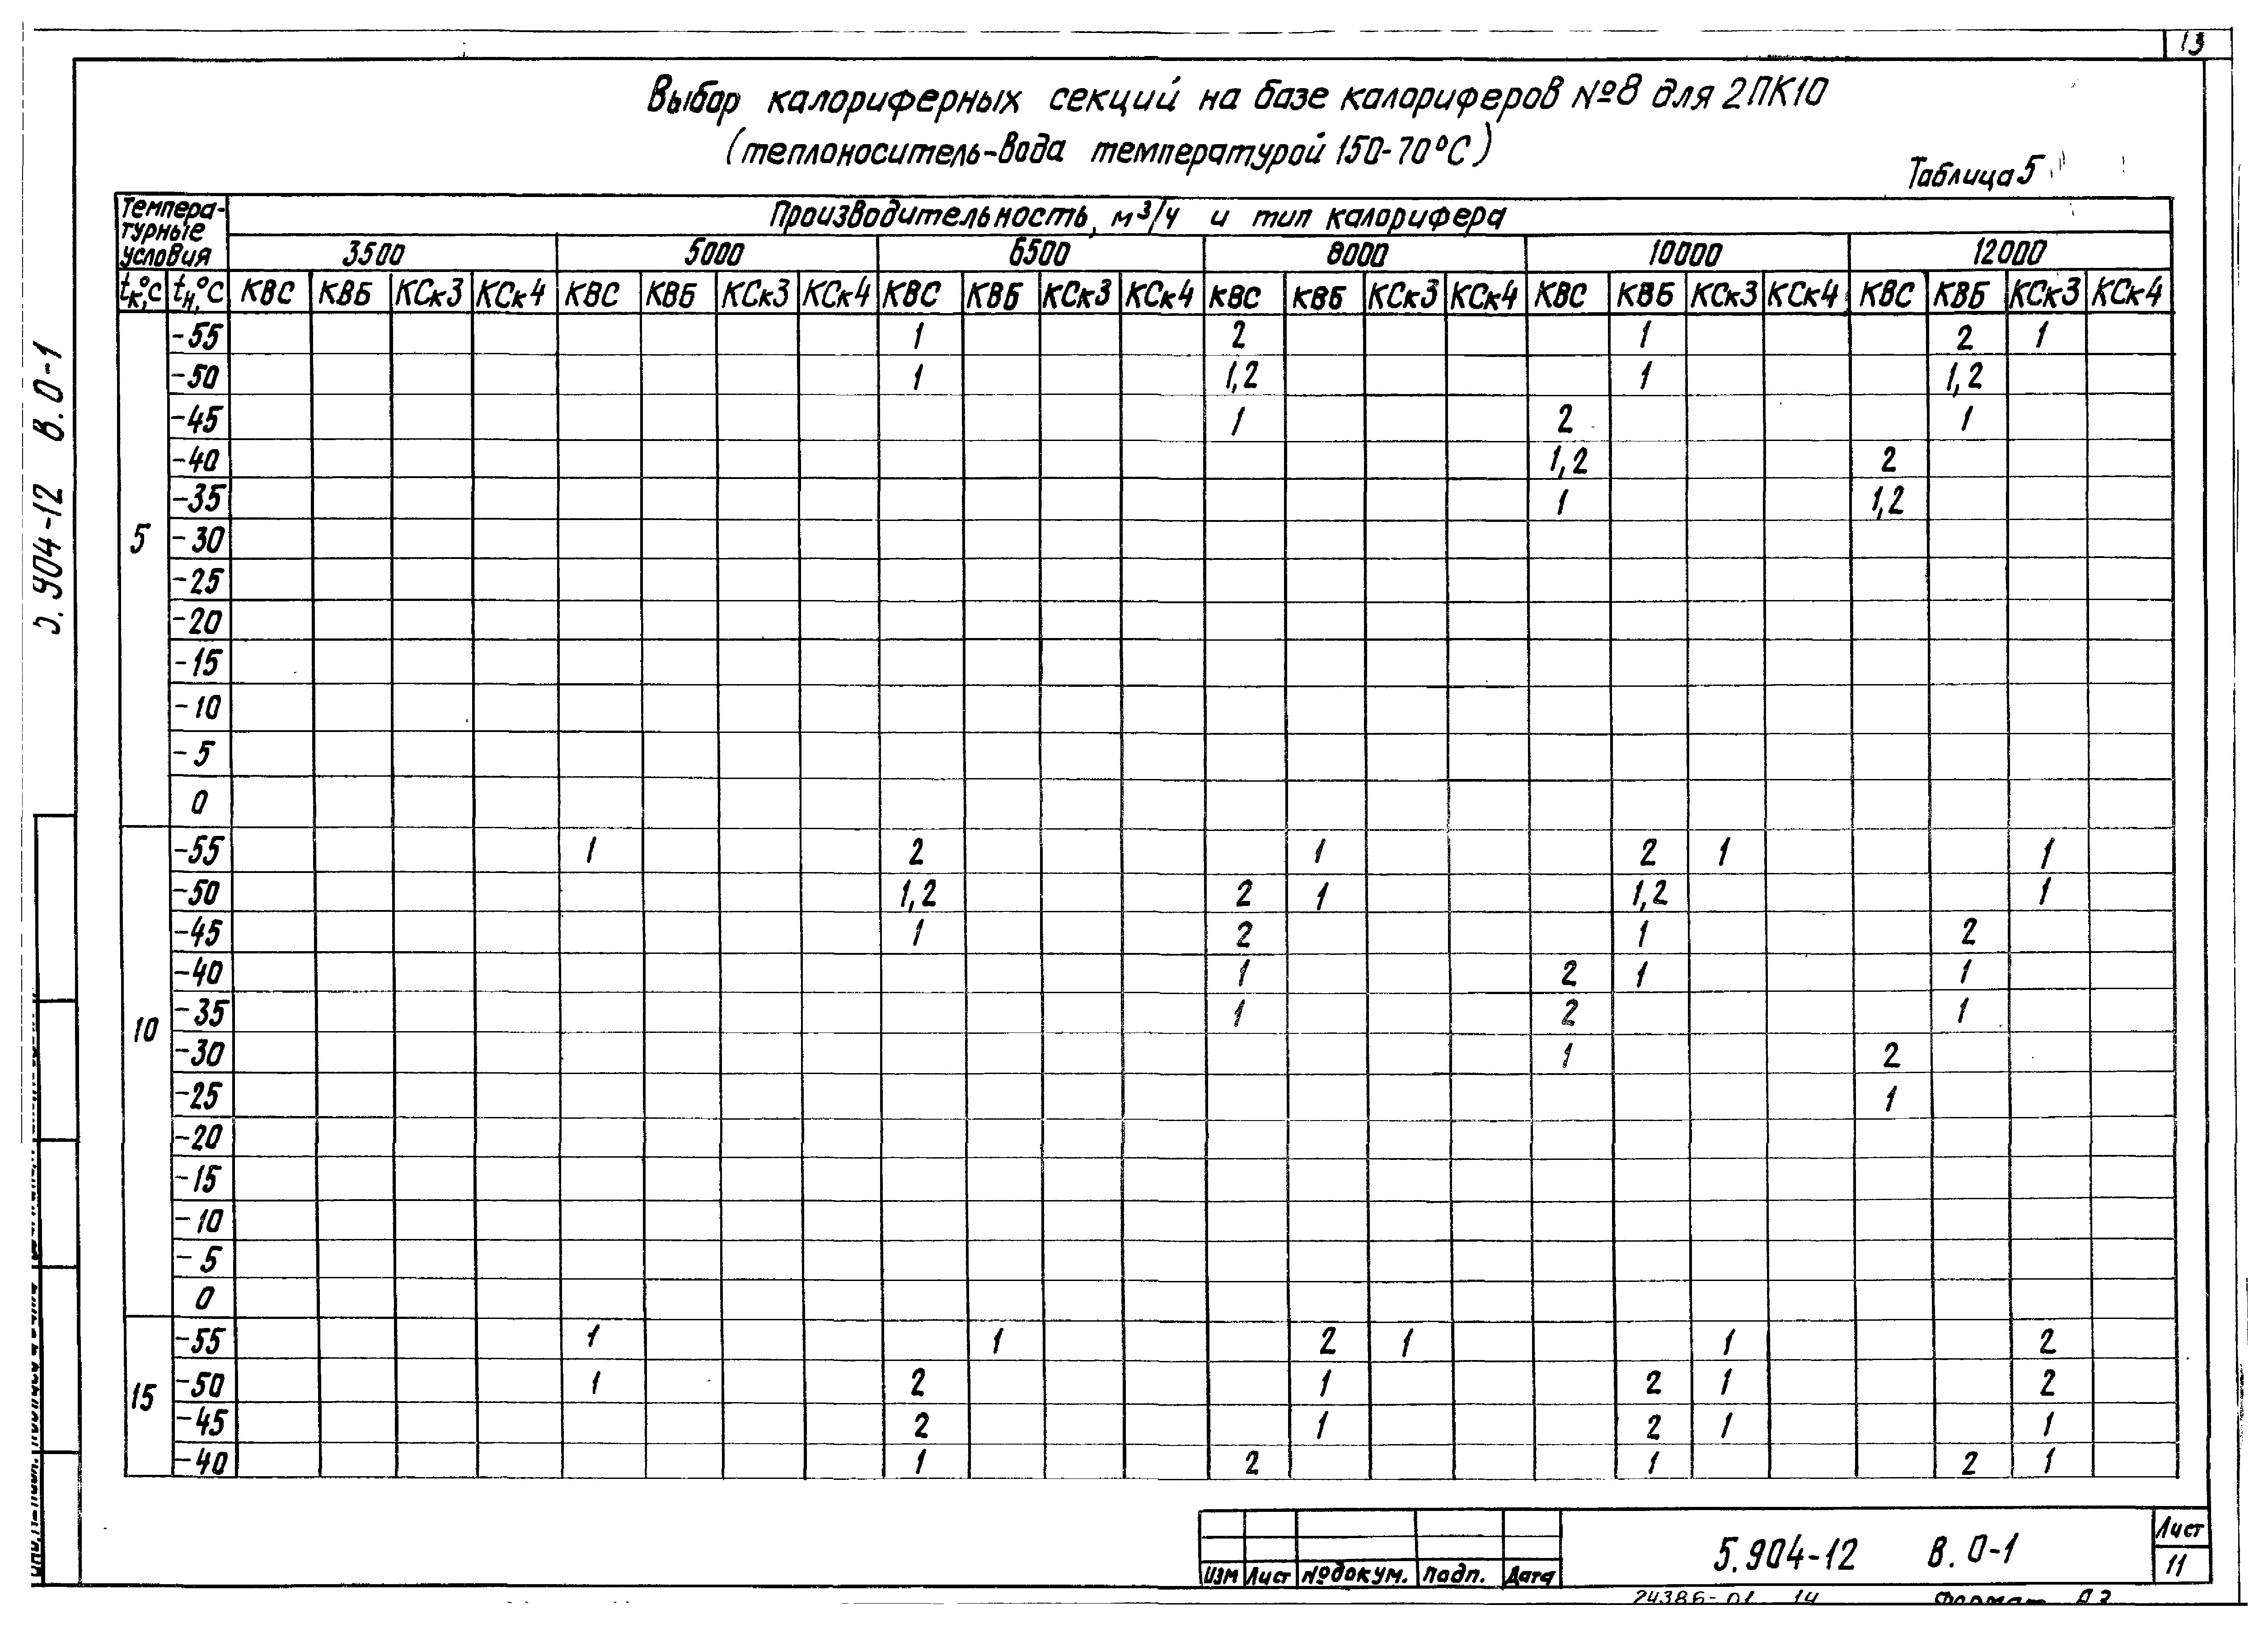 13
Выбор калориферных секций на базе калориферов №8 для 2ПК10
(теплоноситель-вода температурой 150-70°С)
Таблица 5
Температурные условия | Производительность, м³/ч и тип калорифера
3500 | 5000 | 6500 | 8000 | 10000 | 12000
tк,°С | tн,°С | КВС | КВБ | КСк3 | КСк4 | КВС | КВБ | КСк3 | КСк4 | КВС | КВБ | КСк3 | КСк4 | КВС | КВБ | КСк3 | КСк4 | КВС | КВБ | КСк3 | КСк4 | КВС | КВБ | КСк3 | КСк4
5 | -55 | | | | | | | | | 1 | | | | 2 | | | | | 1 | | | | 2 | 1 |
-50 | | | | | | | | | 1 | | | | 1,2 | | | | | 1 | | | | 1,2 | |
-45 | | | | | | | | | | | | | 1 | | | | 2 | | | | | 1 | |
-40 | | | | | | | | | | | | | | | | | 1,2 | | | | 2 | | |
-35 | | | | | | | | | | | | | | | | | 1 | | | | 1,2 | | |
-30
-25
-20
-15
-10
-5
0
10 | -55 | | | | | 1 | | | | 2 | | | | | 1 | | | | 2 | 1 | | | | 1 |
-50 | | | | | | | | | 1,2 | | | | 2 | 1 | | | | 1,2 | | | | | 1 |
-45 | | | | | | | | | 1 | | | | 2 | | | | | 1 | | | | 2 | |
-40 | | | | | | | | | | | | | 1 | | | | 2 | 1 | | | | 1 | |
-35 | | | | | | | | | | | | | 1 | | | | 2 | | | | | 1 | |
-30 | | | | | | | | | | | | | | | | | 1 | | | | 2 | | |
-25 | | | | | | | | | | | | | | | | | | | | | 1 | | |
-20
-15
-10
-5
0
15 | -55 | | | | | 1 | | | | | 1 | | | | 2 | 1 | | | | 1 | | | | 2 |
-50 | | | | | 1 | | | | 2 | | | | | 1 | | | | 2 | 1 | | | | 2 |
-45 | | | | | | | | | 2 | | | | | 1 | | | | 2 | 1 | | | | 1 |
-40 | | | | | | | | | 1 | | | | 2 | | | | | 1 | | | | 2 | 1 |
5.904-12 В.0-1
Изм Лист №докум. Подп. Дата
5.904-12 В.0-1
Лист
11
24386-01 14
Формат А3